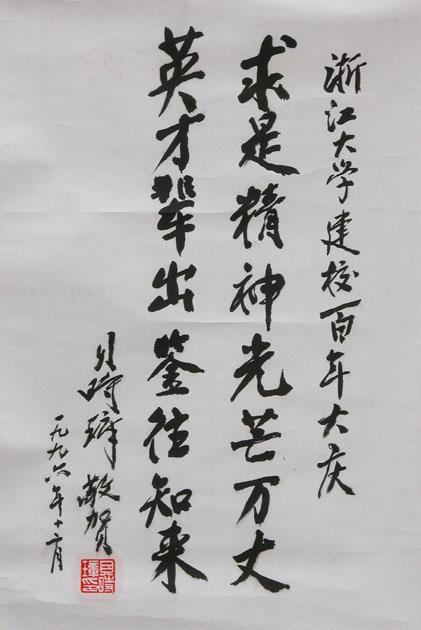 浙江大学建校百年大庆
求是精神光芒万丈
英才辈出鉴往知来
贝时璋敬贺
一九九六年十二月
貝時璋印